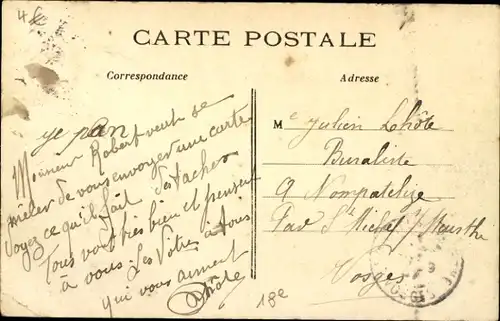 48c
CARTE POSTALE
Correspondance
Adresse
ye pan
Monsieur Robert veut se
mêler de vous envoyer une carte
Voyez ce qu'il fait des taches
Tous vont très bien et pensent
à vous. Les Vôtres à tous
qui vous aiment
Lhôte
18e
Me Julien Lehôte
Buraliste
à Nompatelize
Par St Michel s/ Meurthe
Vosges